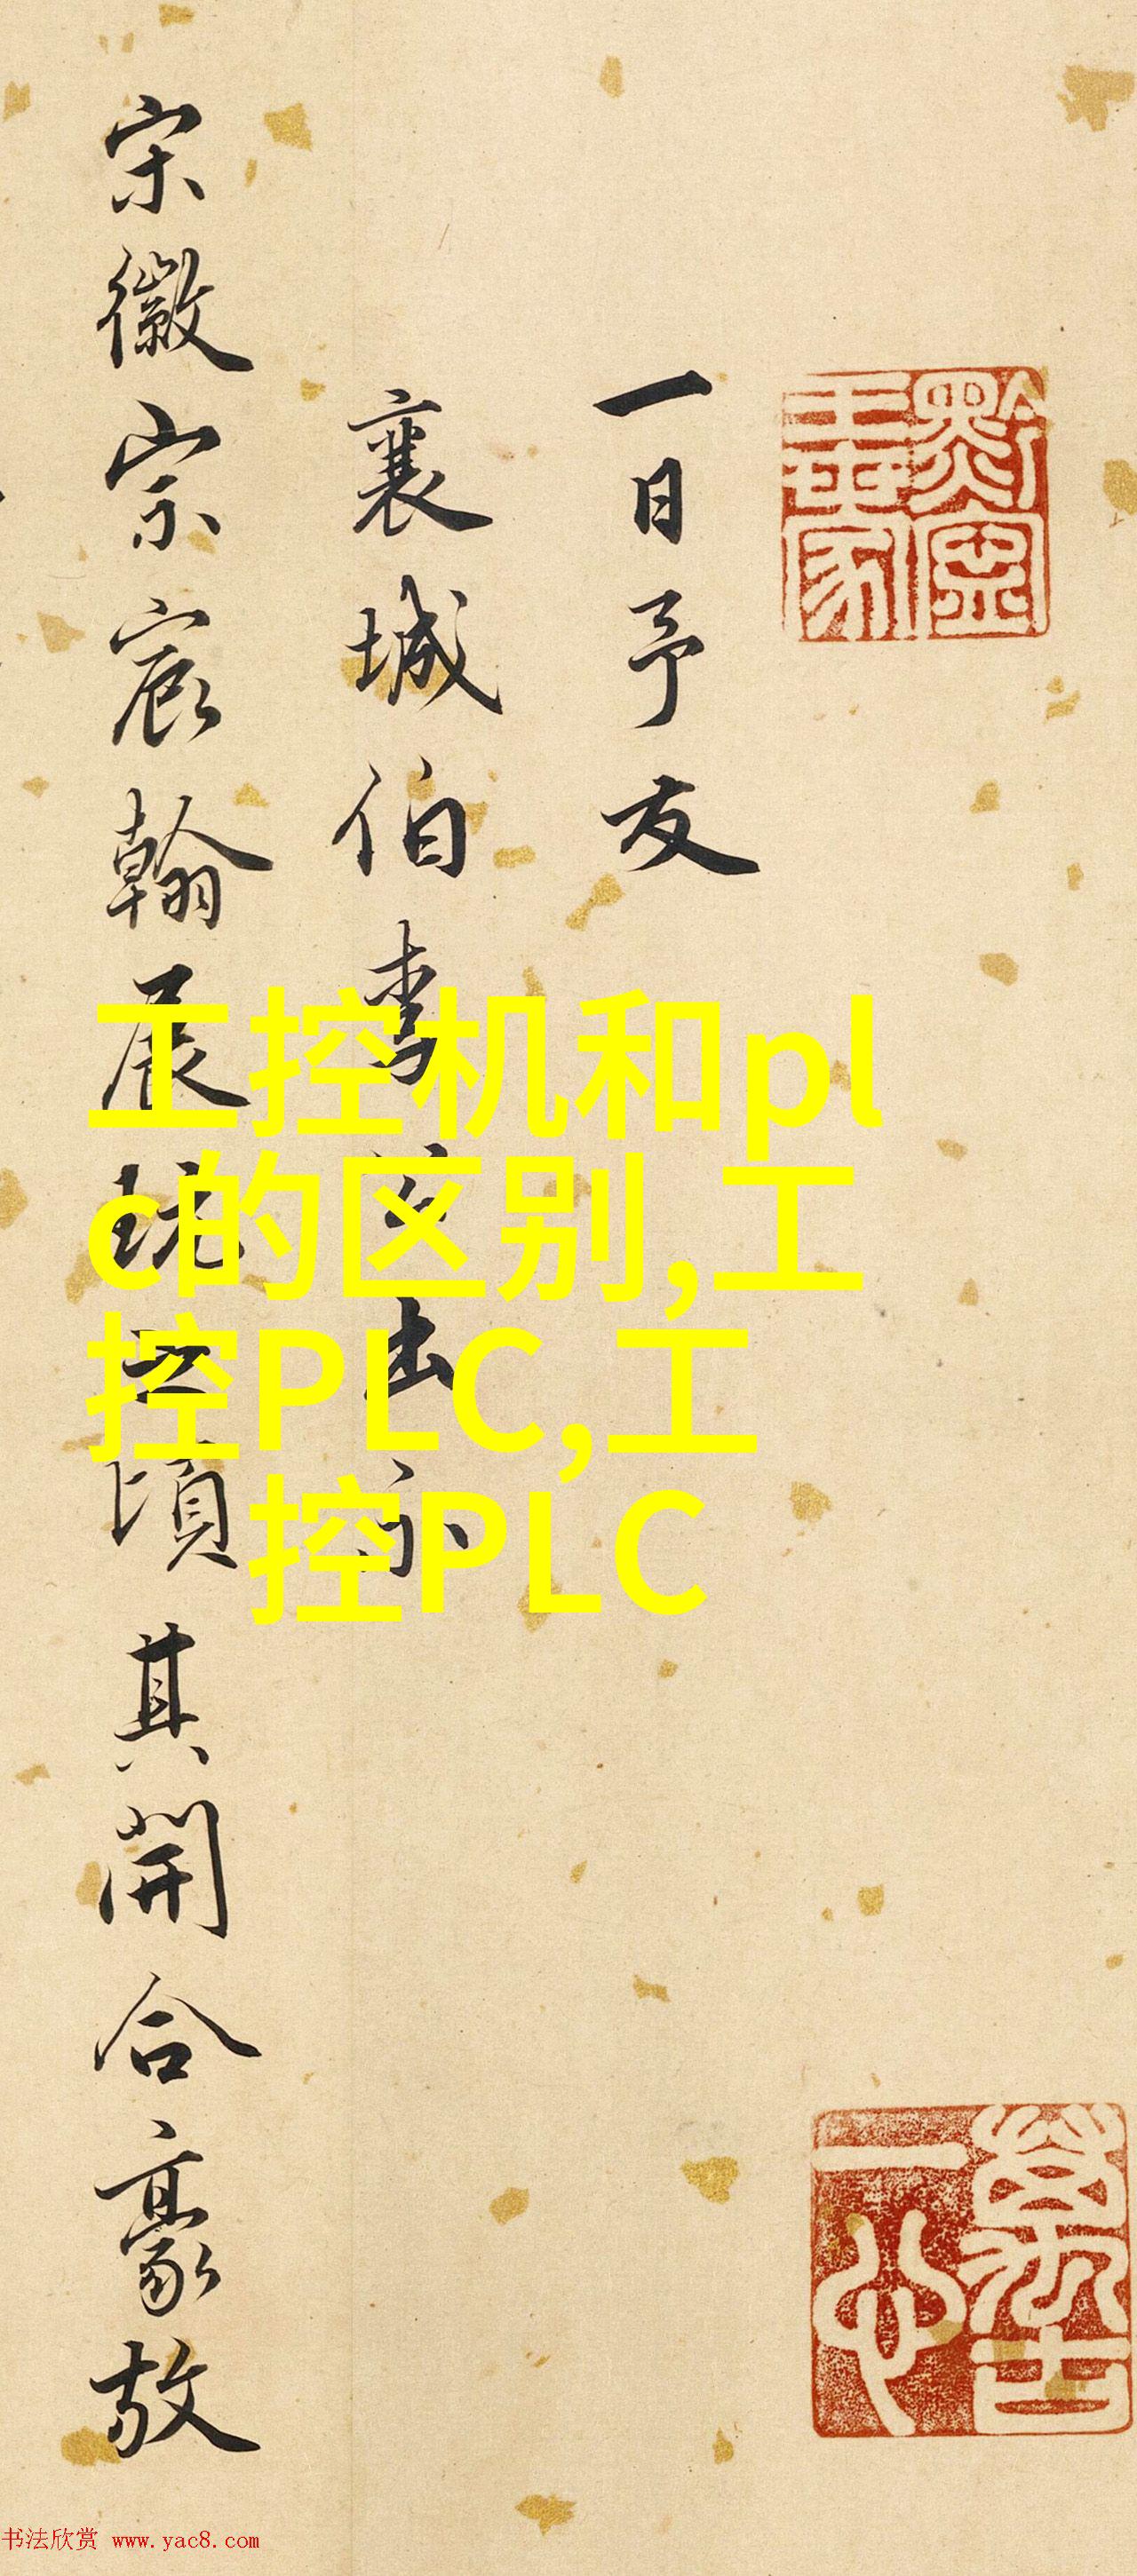 一日予友
襄城伯李公出示
宋徽宗宸翰展玩之頃其開合豪放
工控机和pl
c的区别,工
控PLC,工
控PLC
萬古一心
书法欣赏 www.yac8.com